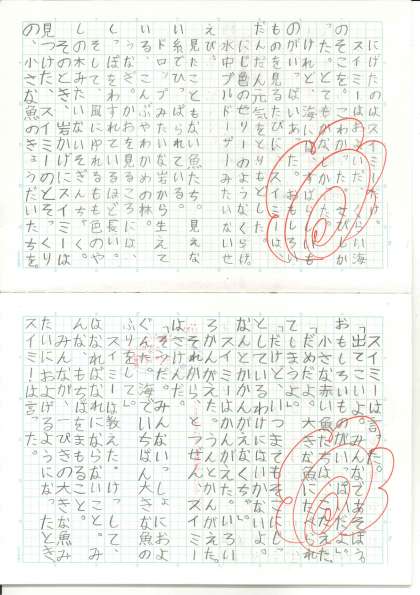 にげたのはスイミーだけ。
スイミーはおよいだ、くらい海
のそこを。こわかった。さびしか
った。とてもかなしかった。
けれど、海にはすばらしいも
のがいっぱいあった。おもしろい
ものを見るたびにスイミーは、
だんだん元気をとりもどした。
にじ色のゼリーのようなくらげ。
水中ブルドーザーみたいないせ
えび。
見たこともない魚たち。見えな
い糸でひっぱられている。
ドロップみたいな岩から生えて
いる、こんぶやわかめの林。
うなぎ。かおを見るころには、
しっぽをわすれているほど長い。
そして、風にゆれるもも色のや
しの木みたいないそぎんちゃく。
そのとき、岩かげにスイミーは
見つけた、スイミーのとそっくり
の、小さな魚のきょうだいたちを。
スイミーは言った。
「出てこいよ。みんなであそぼう。
おもしろいものがいっぱいだよ。」
小さな赤い魚たちは、こたえた。
「だめだよ。大きな魚にたべられ
てしまうよ。」
「だけど、いつまでもそこにじっ
としているわけにはいかないよ。
なんとかかんがえなくちゃ。」
スイミーはかんがえた。いろい
ろかんがえた。うんとかんがえた。
それから、とつぜん、スイミー
はさけんだ。
「そうだ。みんないっしょにおよ
ぐんだ。海でいちばん大きな魚の
ふりをして。」
スイミーは教えた。けっして、
はなればなれにならないこと。み
んな、もちばをまもること。
みんなが、一ぴきの大きな魚み
たいにおよげるようになったとき、
スイミーは言った。